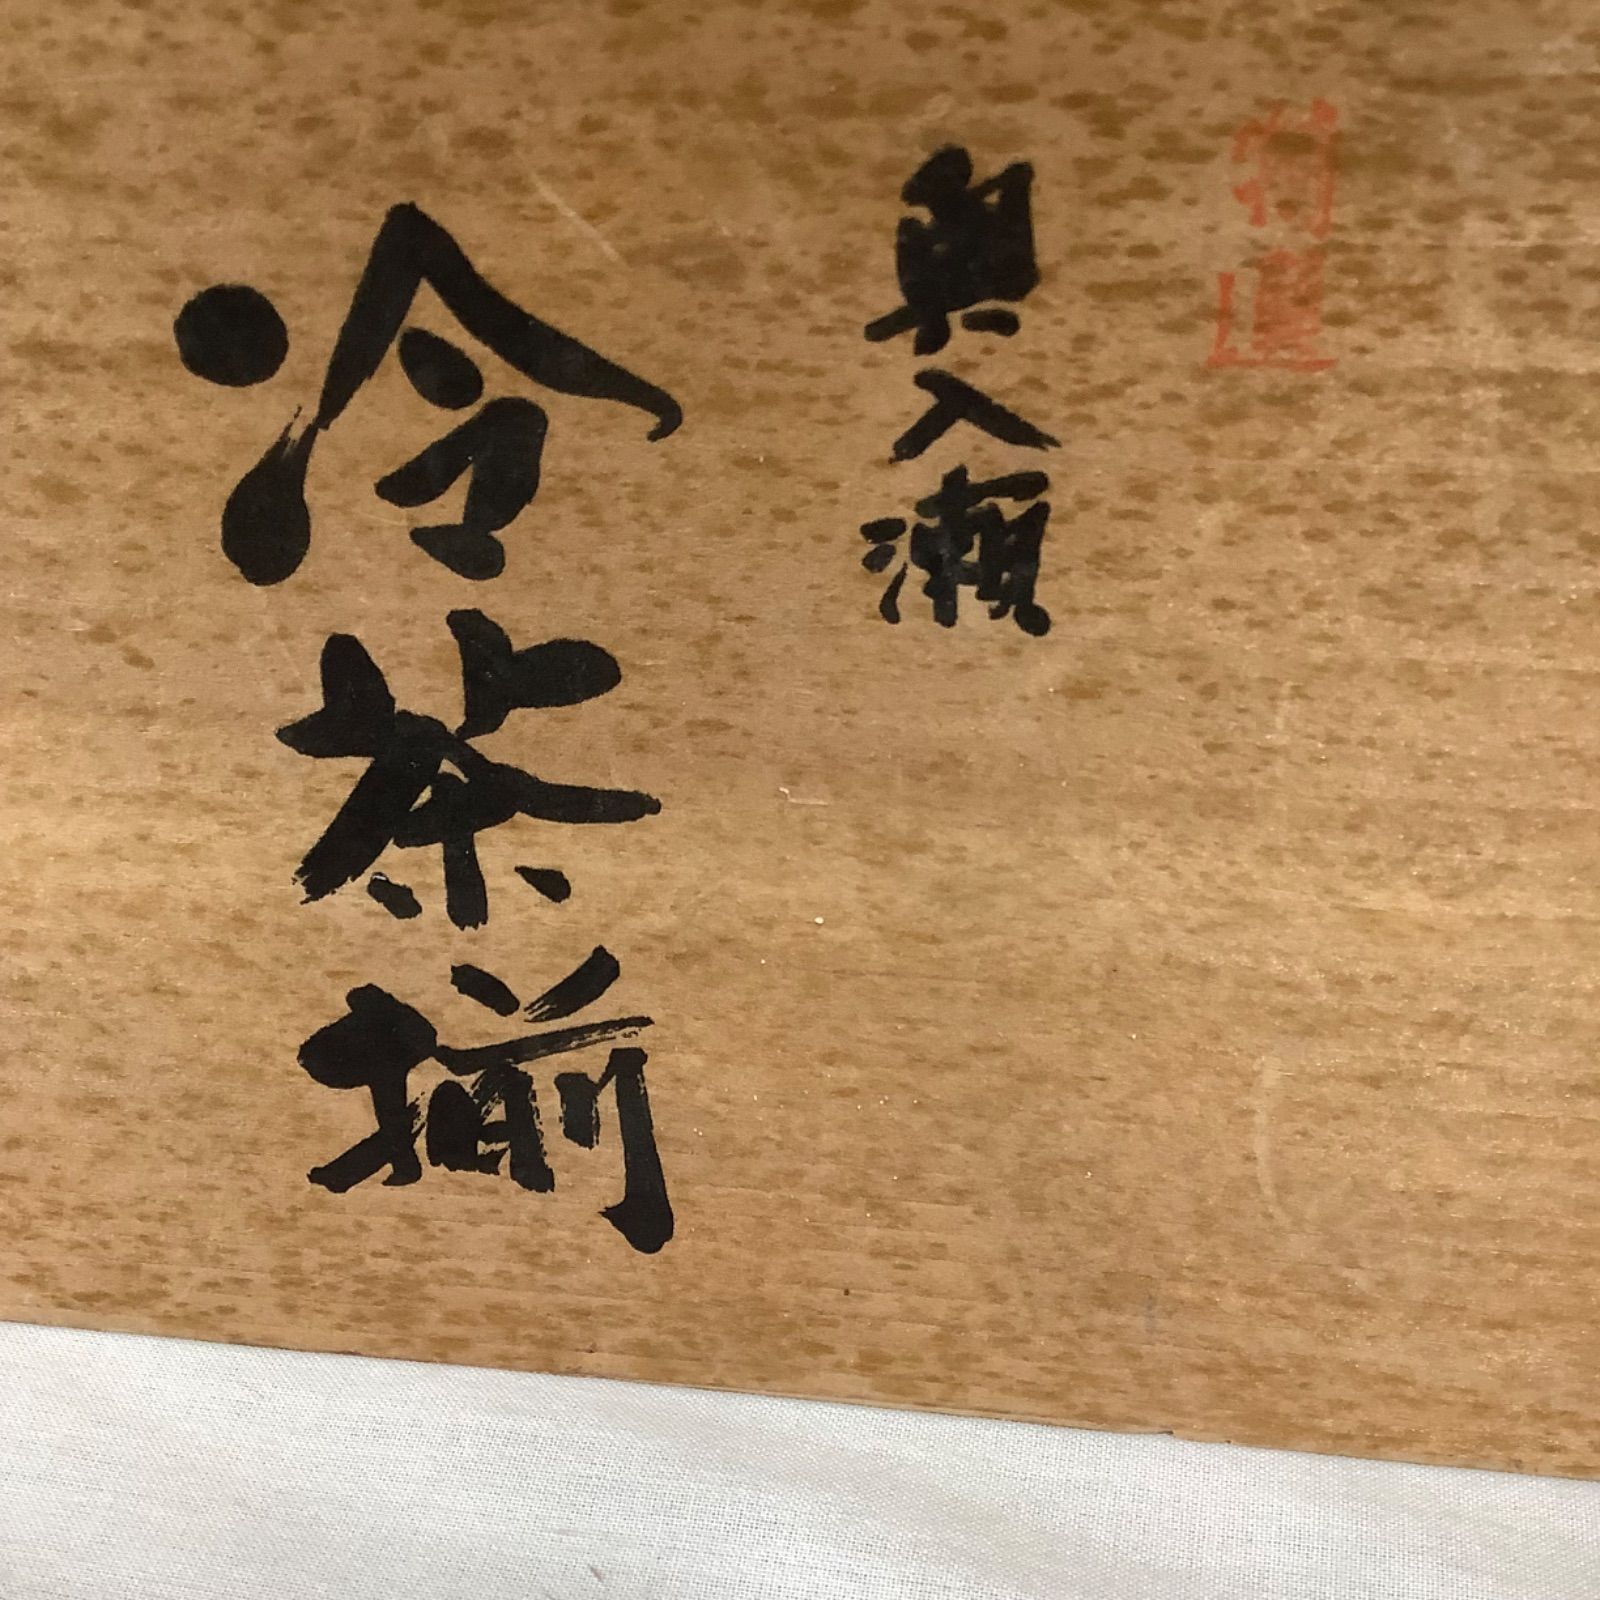 特選
奥入瀬
冷茶揃